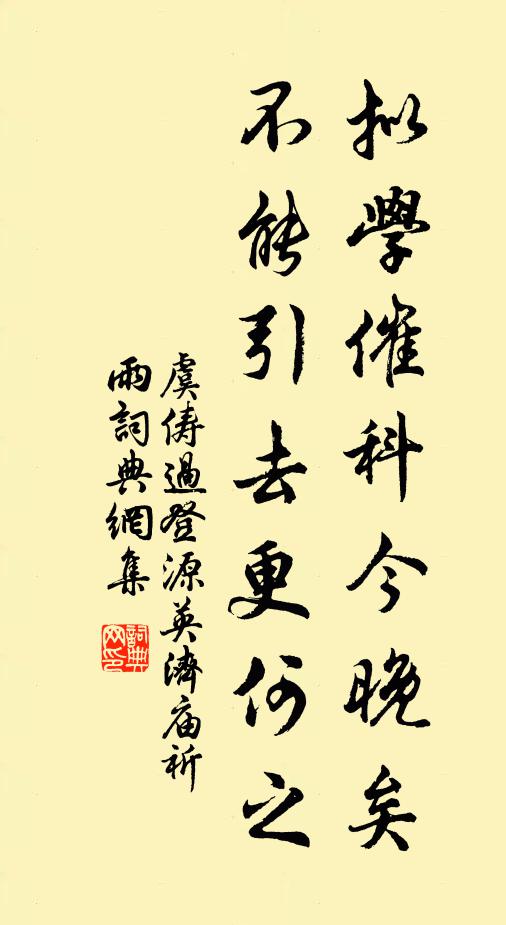 拟學催科今晚矣
不能引去更何之
虞俦過登源英濟庙祈
雨詞典網集
詞典
网印